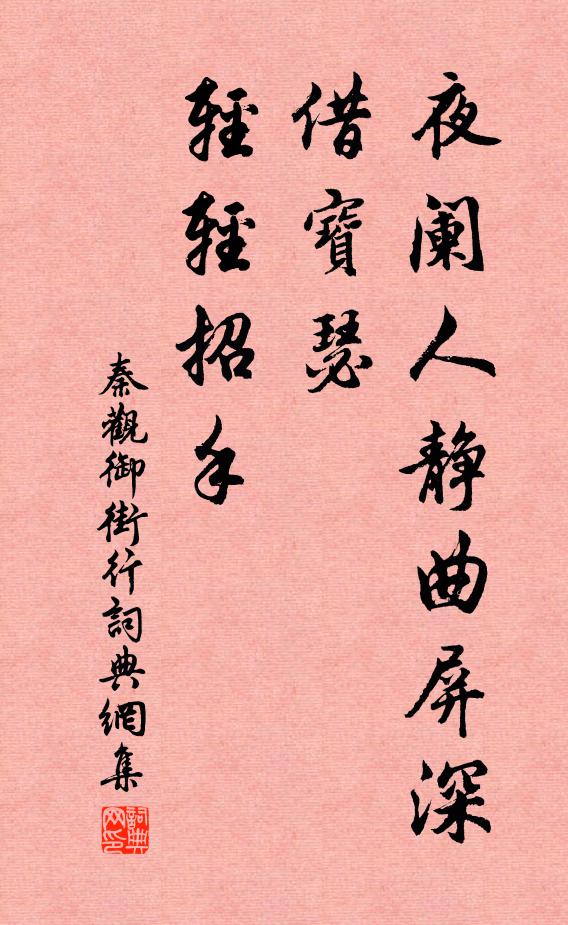 夜阑人静曲屏深
借寶瑟
輕輕招手
秦觀御街行詞典網集
詞典
网印